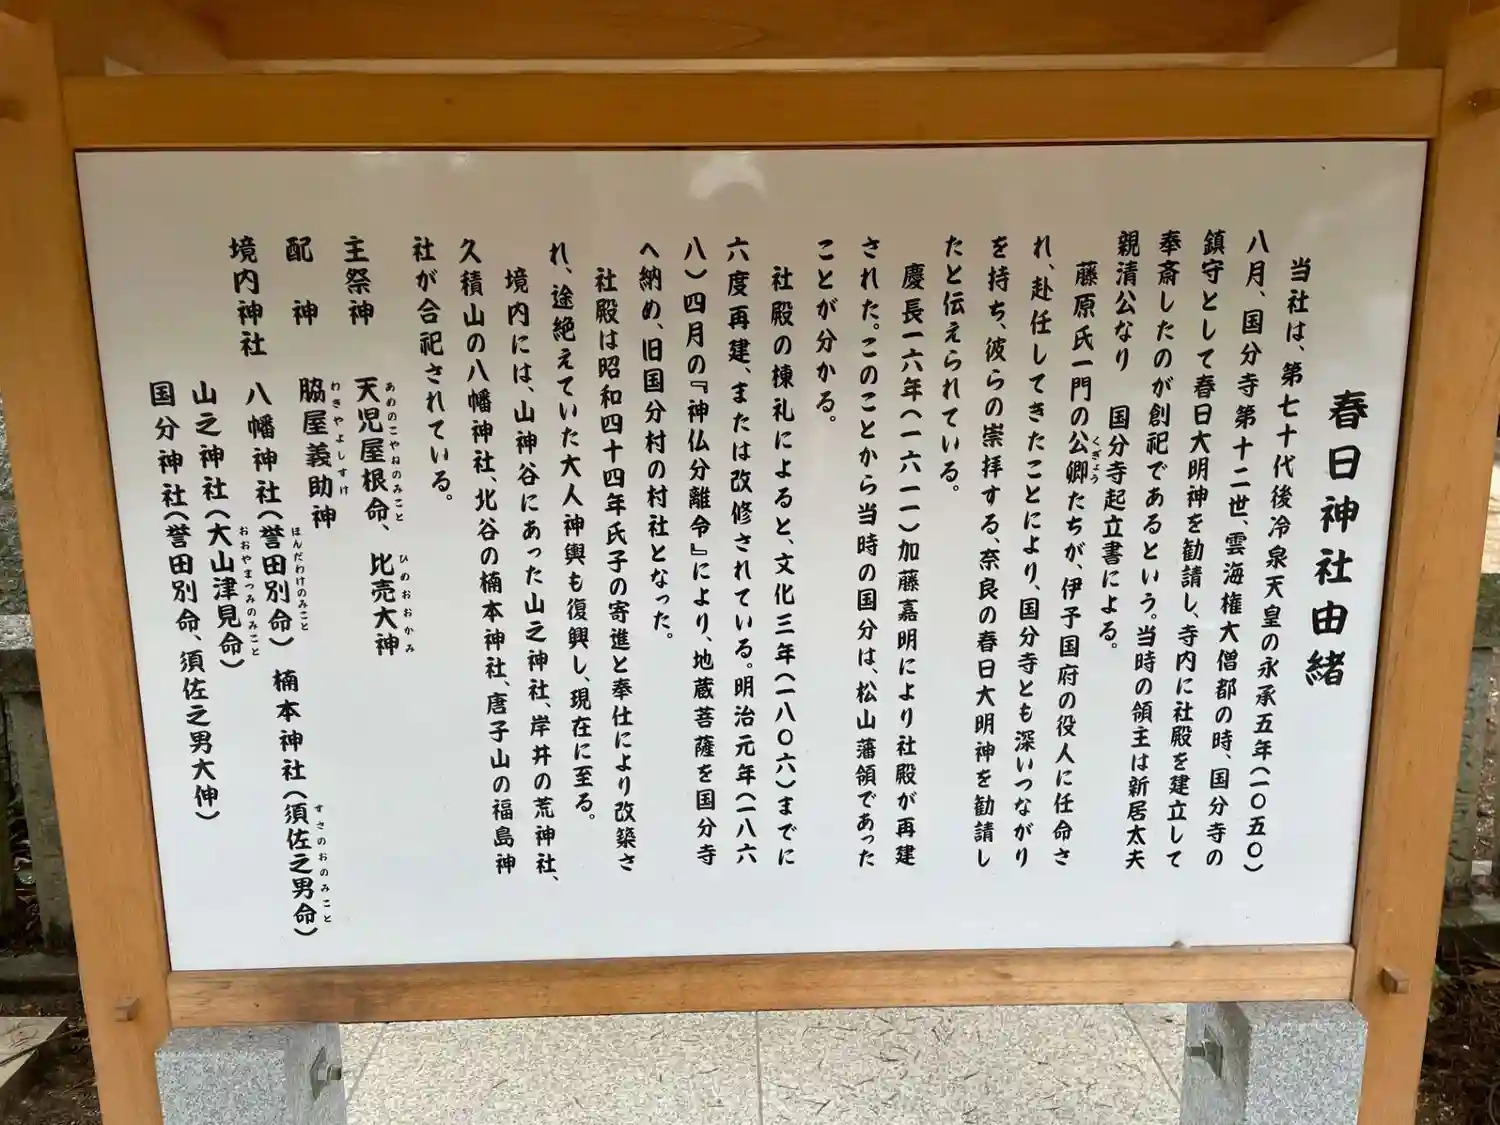 春日神社由緒
当社は、第七十代後冷泉天皇の永承五年(一〇五〇)
八月、国分寺第十二世、雲海権大僧都の時、国分寺の
鎮守として春日大明神を勧請し、寺内に社殿を建立して
奉斎したのが創祀であるという。当時の領主は新居太夫
親清公なり 国分寺起立書による。
藤原氏一門の公卿たちが、伊予国府の役人に任命さ
くぎょう
れ、赴任してきたことにより、国分寺とも深いつながり
を持ち、彼らの崇拝する、奈良の春日大明神を勧請し
たと伝えられている。
慶長一六年(一六一一)加藤嘉明により社殿が再建
された。このことから当時の国分は、松山藩領であった
ことが分かる。
社殿の棟礼によると、文化三年(一八〇六)までに
六度再建、または改修されている。明治元年(一八六
八)四月の『神仏分離令』により、地蔵菩薩を国分寺
へ納め、旧国分村の村社となった。
社殿は昭和四十四年氏子の寄進と奉仕により改築さ
れ、途絶えていた大人神輿も復興し、現在に至る。
境内には、山神谷にあった山之神社、岸井の荒神社、
久積山の八幡神社、北谷の楠本神社、唐子山の福島神
社が合祀されている。
主祭神 天児屋根命、比売大神
あめのこやねのみこと ひのおおかみ
配神 脇屋義助神
わきやよしすけ
境内神社 八幡神社(誉田別命) 楠本神社(須佐之男命)
ほんだわけのみこと すさのおのみこと
山之神社(大山津見命)
おおやまつみのみこと
国分神社(誉田別命、須佐之男大伸)